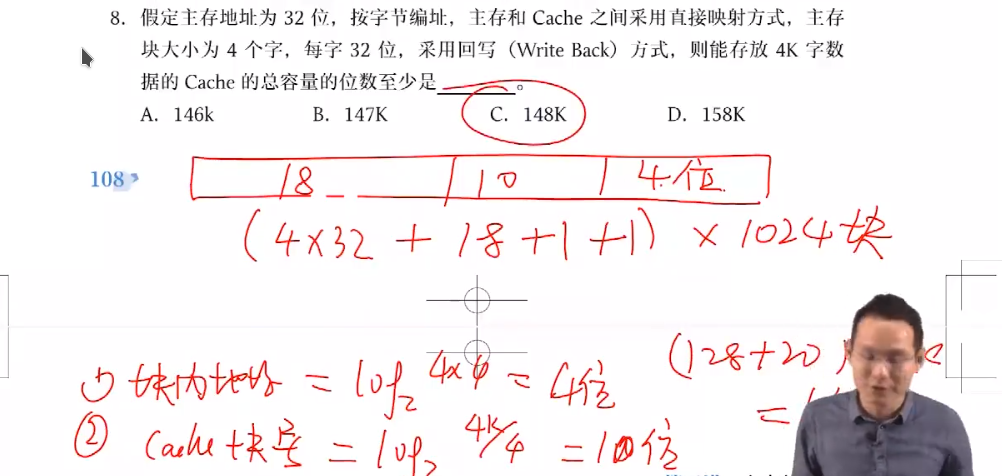 8. 假定主存地址为 32 位，按字节编址，主存和 Cache 之间采用直接映射方式，主存
块大小为 4 个字，每字 32 位，采用回写（Write Back）方式，则能存放 4K 字数
据的 Cache 的总容量的位数至少是______。
A. 146k B. 147K C. 148K D. 158K
108
18 10 4位
(4×32 + 18+1+1) × 1024块
(128+20)
① 块内地址 = log₂ 4×4 = 4位
=
② Cache块号 = log₂ 4K/4 = 10位